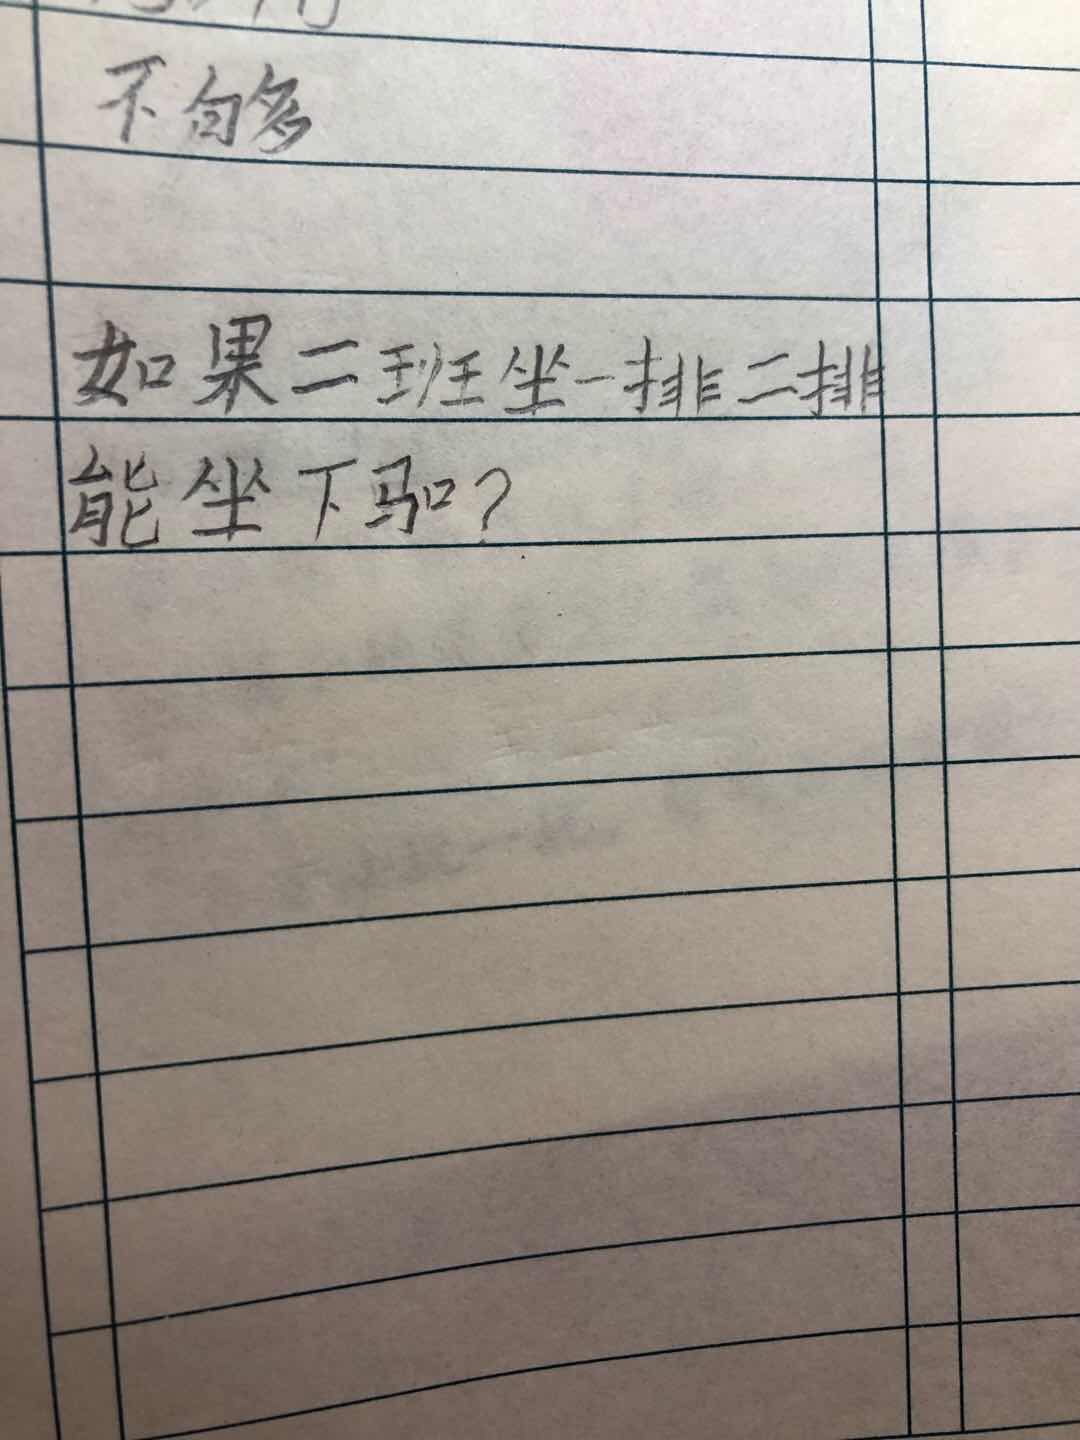 不够
如果二班坐一排二排
能坐下吗?